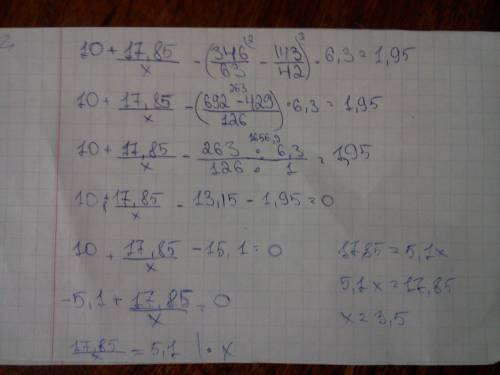 10 + 17,85/x - (346/63 \2 - 143/42 \3) · 6,3 = 1,95
10 + 17,85/x - (692 - 429/126) 263 · 6,3 = 1,95
10 + 17,85/x - 263 · 6,3/126 · 1 1656,9 = 1,95
10 + 17,85/x - 13,15 - 1,95 = 0
10 + 17,85/x - 15,1 = 0
-5,1 + 17,85/x = 0
17,85/x = 5,1 | · x
17,85 = 5,1x
5,1x = 17,85
x = 3,5